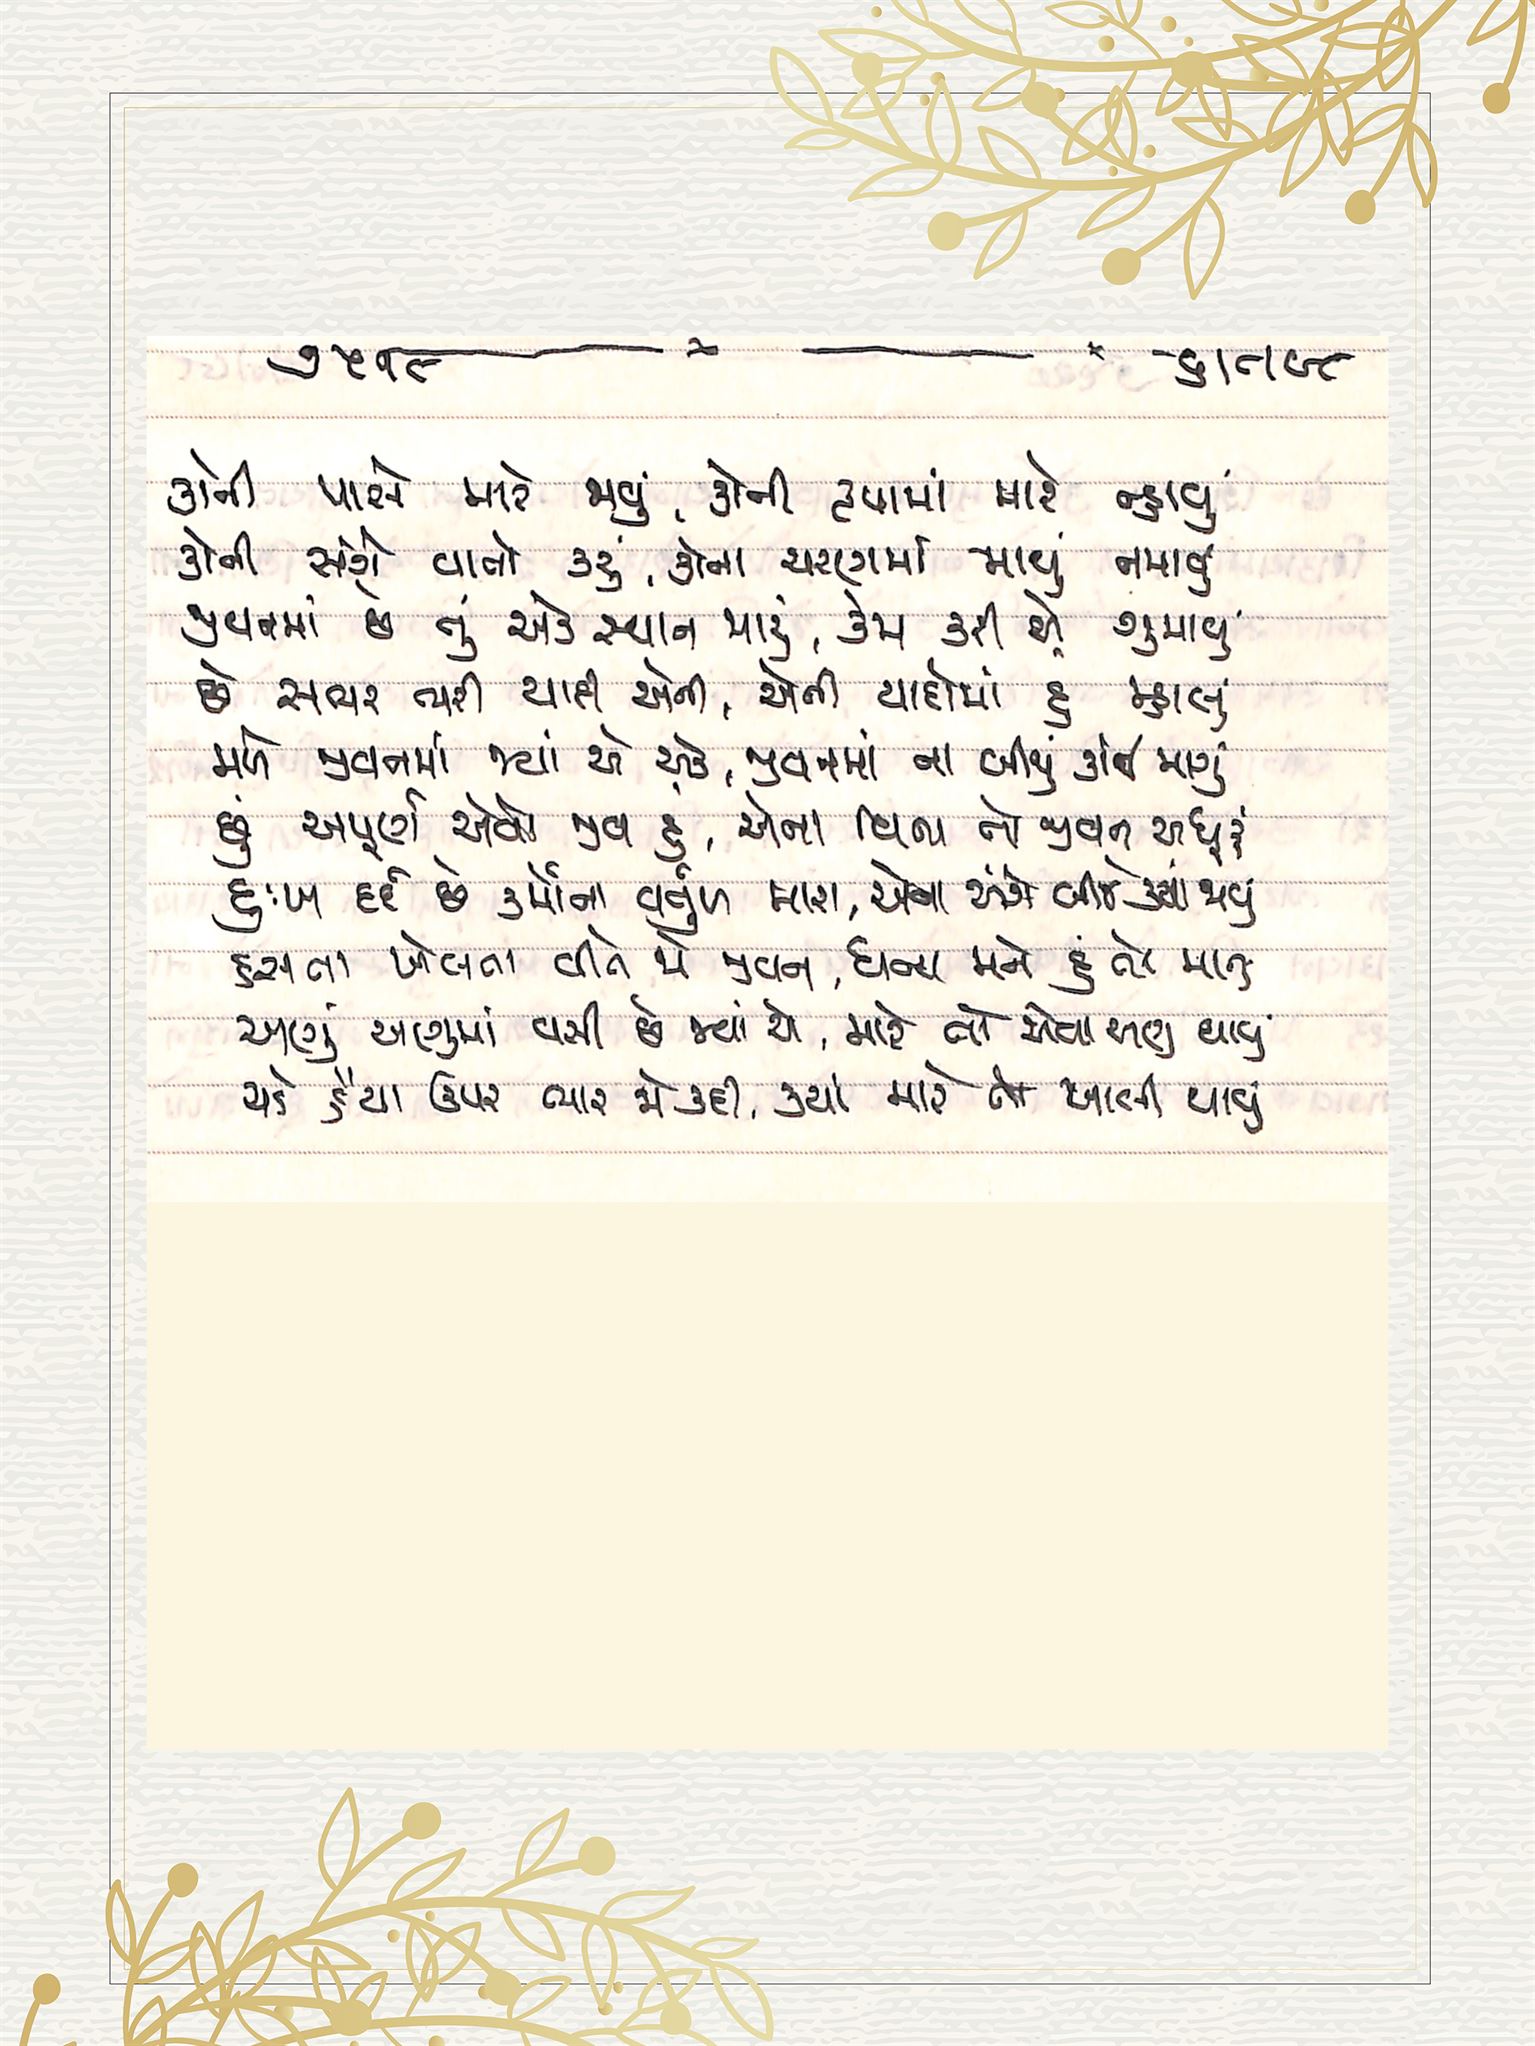 કોની પાસે મારે જાવું, કોની કૃપામાં મારે ન્હાવું
કોની સંગે વાતો કરું, કોના ચરણમાં માથું નમાવું
જીવનમાં છે નું એક સ્થાન મારું, કેમ કરી એ ગુમાવું
છે સભર પ્યારી યાદી એની, એની યાદોમાં હું મ્હાલું
મળે જીવનમાં જ્યાં એ એક, જીવનમાં ના બીજું કાંઈ માગું
છું અપૂર્ણ એવો જીવ હું, એના વિના તો જીવન અધૂરું
દુઃખ દર્દ છે કર્મોના વર્તુળ મારા, એના અંગે બીજે ક્યાં જાવું
હસતા ખેલતા વીતે જો જીવન, ધન્ય મને હું તો માનું
અણું અણુમાં વસી છે જ્યાં એ, મારે તો એવા અણુ થાવું
ચડે હૈયા ઉપર ભાર જો કદી, ક્યાં મારે ખાલી થાવું